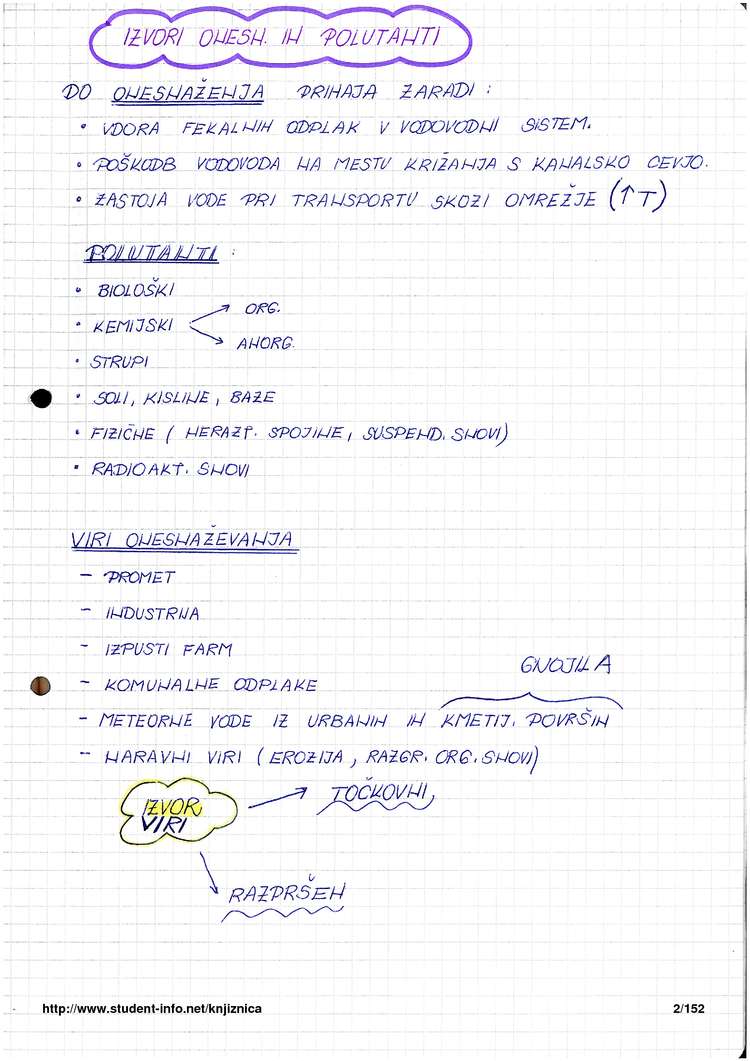 IZVORI ONESN. IN POLUTANTI
DO ONESNAŽENJA PRIHAJA ZARADI :
• VDORA FEKALNIH ODPLAK V VODOVODNI SISTEM.
• POŠKODB VODOVODA NA MESTU KRIŽANJA S KANALSKO CEVJO.
• ZASTOJA VODE PRI TRANSPORTU SKOZI OMREŽJE (↑T)
POLUTANTI :
• BIOLOŠKI
• KEMIJSKI
ORG.
ANORG.
• STRUPI
• SOLI, KISLINE, BAZE
• FIZIČNE (NERAZT. SPOJINE, SUSPEND. SNOVI)
• RADIOAKT. SNOVI
VIRI ONESNAŽEVANJA
- PROMET
- INDUSTRIJA
- IZPUSTI FARM
GNOJILA
- KOMUNALNE ODPLAKE
- METEORNE VODE IZ URBANIH IN KMETIJ. POVRŠIN
- NARAVNI VIRI (EROZIJA, RAZGR. ORG. SNOVI)
IZVOR,
VIRI
TOČKOVNI,
RAZPRŠEN
http://www.student-info.net/knjiznica
2/152